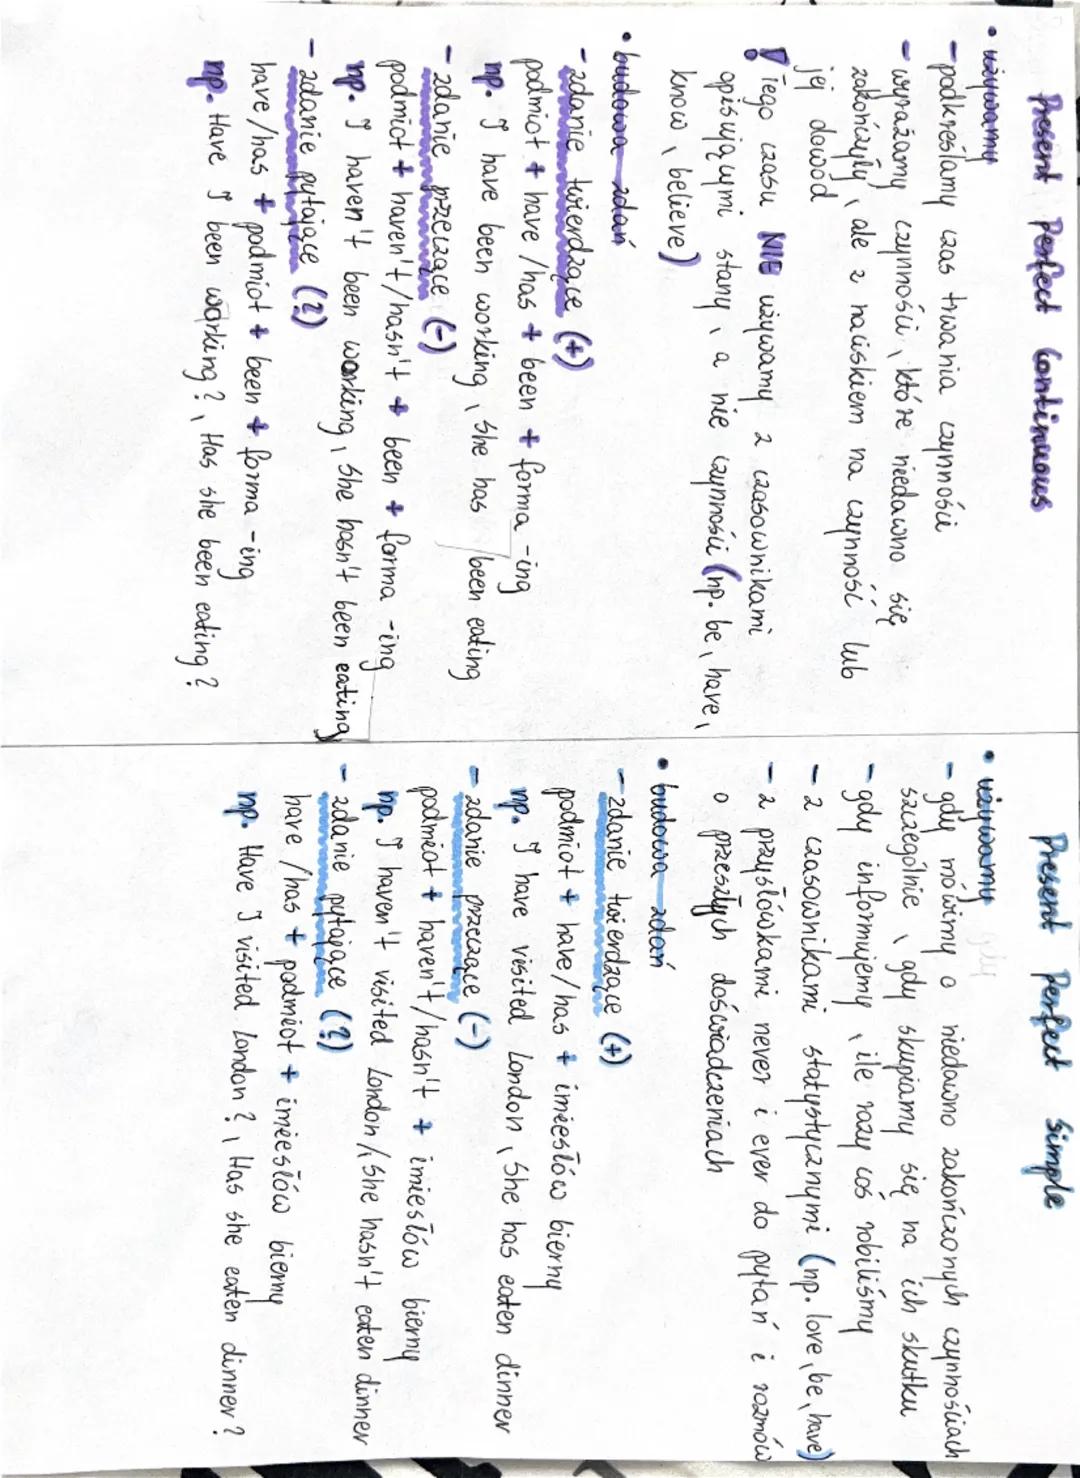 Present Perfect Continuous
• używamy
- podkreślamy czas trwania czynności
- wyrażamy czynności, które niedawno się
zakończyły, ale z naciskiem na czynność lub
jej dowód
! Tego czasu NIE używamy z czasownikami
opisującymi stany, a nie czynności (np. be, have,
know, believe)
• budowa zdań
- zdanie twierdzące (+)
podmiot + have/has + been + forma -ing
np. I have been working, she has been eating
- zdanie przeczące (-)
podmiot + haven't/hasn't + been + forma -ing
np. I haven't been working, she hasn't been eating
- zdanie pytające (?)
have/has + podmiot + been + forma -ing
np. Have I been working?, Has she been eating?
Present Perfect Simple
• używamy
- gdy mówimy o niedawno zakończonych czynnościach
szczególnie, gdy skupiamy się na ich skutku
- gdy informujemy, ile razy coś robiliśmy
- z czasownikami statystycznymi (np. love, be, have)
- z przysłówkami never i ever do pytań i rozmów
o przeszłych doświadczeniach
• budowa zdań
- zdanie twierdzące (+)
podmiot + have/has + imiesłów bierny
np. I have visited London, She has eaten dinner
- zdanie przeczące (-)
podmiot + haven't/hasn't + imiesłów bierny
np. I haven't visited London/, She hasn't eaten dinner
- zdanie pytające (?)
have/has + podmiot + imiesłów bierny
np. Have I visited London?, Has she eaten dinner?